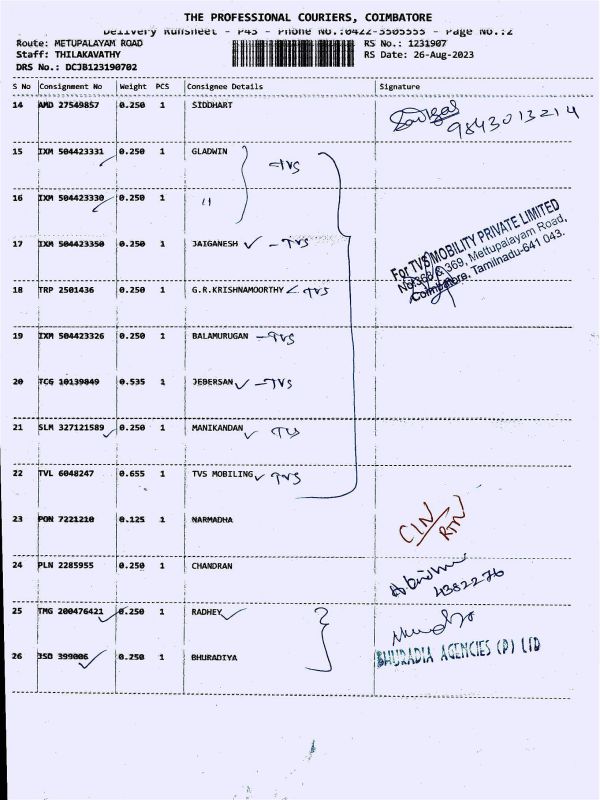 THE PROFESSIONAL COURIERS, COIMBATORE
Delivery Runsheet - P43 - Phone No.:0422-3505555 - Page No.:2
Route: METUPALAYAM ROAD
RS No.: 1231907
Staff: THILAKAVATHY
RS Date: 26-Aug-2023
DRS No.: DCJB123190702
S No Consignment No Weight PCS Consignee Details Signature
14 AMD 27549857 0.250 1 SIDDHART
9843013214
15 IXM 504423331 0.250 1 GLADWIN TVS
16 IXM 504423330 0.250 1 "
17 IXM 504423350 0.250 1 JAIGANESH - TVS
For TVS MOBILITY PRIVATE LIMITED
No.368 & 369, Mettupalayam Road,
Coimbatore, Tamilnadu-641 043.
18 TRP 2501436 0.250 1 G.R.KRISHNAMOORTHY TVS
19 IXM 504423326 0.250 1 BALAMURUGAN - TVS
20 TCG 10139849 0.535 1 JEBERSAN - TVS
21 SLM 327121589 0.250 1 MANIKANDAN TVS
22 TVL 6048247 0.655 1 TVS MOBILING TVS
23 PON 7221210 0.125 1 NARMADHA CIN/RTN
24 PLN 2285955 0.250 1 CHANDRAN
4382276
25 TMG 200476421 0.250 1 RADHEY
26 JSD 399006 0.250 1 BHURADIYA BHURADIA AGENCIES (P) LTD